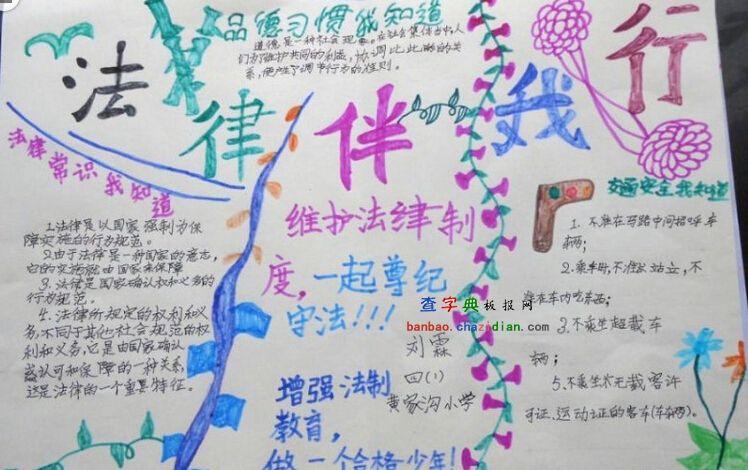 品德习惯我知道
道德是一种社会现象。在社会集体当中人
们为了维护共同的利益，协调比此的关
系，便产生了调节行为的准则。
法律伴我行
法律常识我知道
1.法律是以国家强制力保
障实施的行为规范。
2.由于法律是一种国家的意志，
它的实施就由国家来保障
3.法律是国家确认权和义务的
行为规范。
4.法律所规定的权利和义
务，不同于其他社会规范的权
利和义务，它是由国家确认
或认可和保障的一种关系，
这是法律的一个重要特征。
维护法律制
度，一起尊纪
守法!!!
查字典板报网
banbao.chazidian.com
刘霖
四(1)
黄家沟小学
增强法制
教育，
做一个合格少年!
交通安全我知道
1.不准在马路中间招呼车
辆；
2.乘车时，不准站立，不
准在车内吃东西；
3.不乘坐超载车
辆；
5.不乘坐无载客许
可证、运动证的客车(车辆)。